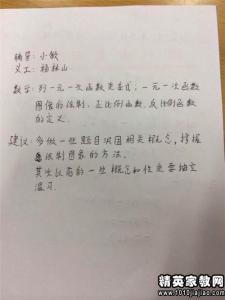 辅导：小敏
义工：杨林山
数学：列一元一次函数关系式，一元一次函数
图像的绘制，正比例函数、反比例函数
的定义。
建议：多做一些题目巩固相关概念，掌握
绘制图象的方法。
其次以前的一些概念和性质要抽空
温习
精英家教网
www.1010jiajiao.com